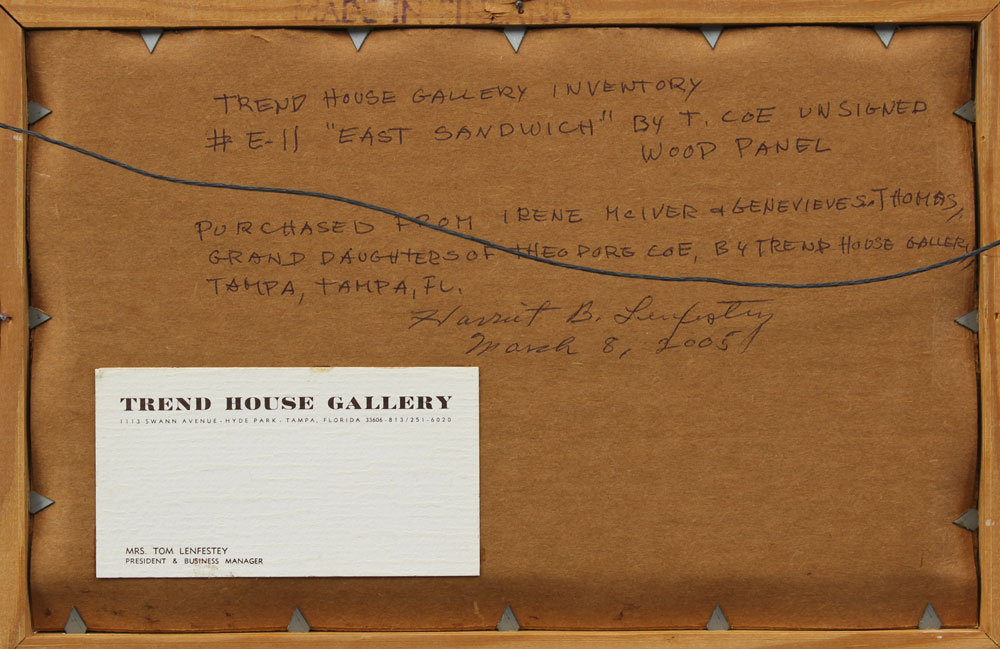 MADE IN FINLAND
TREND HOUSE GALLERY INVENTORY
# E-11 "EAST SANDWICH" BY T. COE UNSIGNED
WOOD PANEL
PURCHASED FROM IRENE MCIVER & GENEVIEVE S. THOMAS,
GRAND DAUGHTERS OF THEODORE COE, BY TREND HOUSE GALLERY,
TAMPA, TAMPA, FL.
Harriet B. Lenfestey
March 8, 2005
TREND HOUSE GALLERY
1113 SWANN AVENUE - HYDE PARK - TAMPA, FLORIDA 33606 - 813/251-6020
MRS. TOM LENFESTEY
PRESIDENT & BUSINESS MANAGER